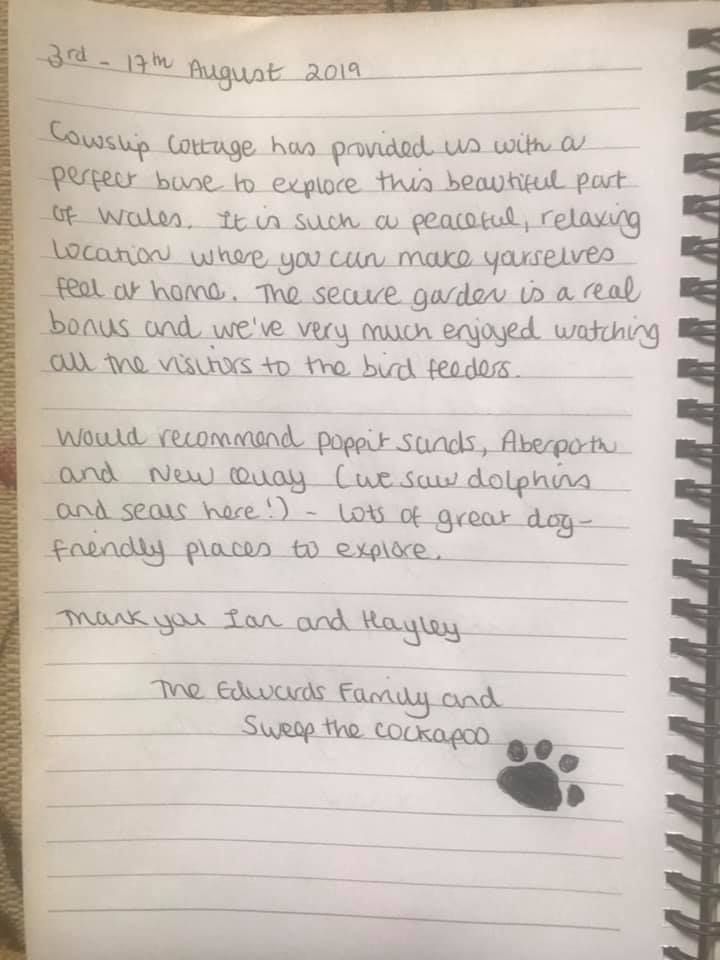 3rd - 17th August 2019
Cowslip Cottage has provided us with a
perfect base to explore this beautiful part
of Wales. It is such a peaceful, relaxing
location where you can make yourselves
feel at home. The secure garden is a real
bonus and we've very much enjoyed watching
all the visitors to the bird feeders.
Would recommend Poppit Sands, Aberporth
and New Quay (we saw dolphins
and seals here!) - lots of great dog-
friendly places to explore.
Thank you Ian and Hayley
The Edwards Family and
Sweep the cockapoo